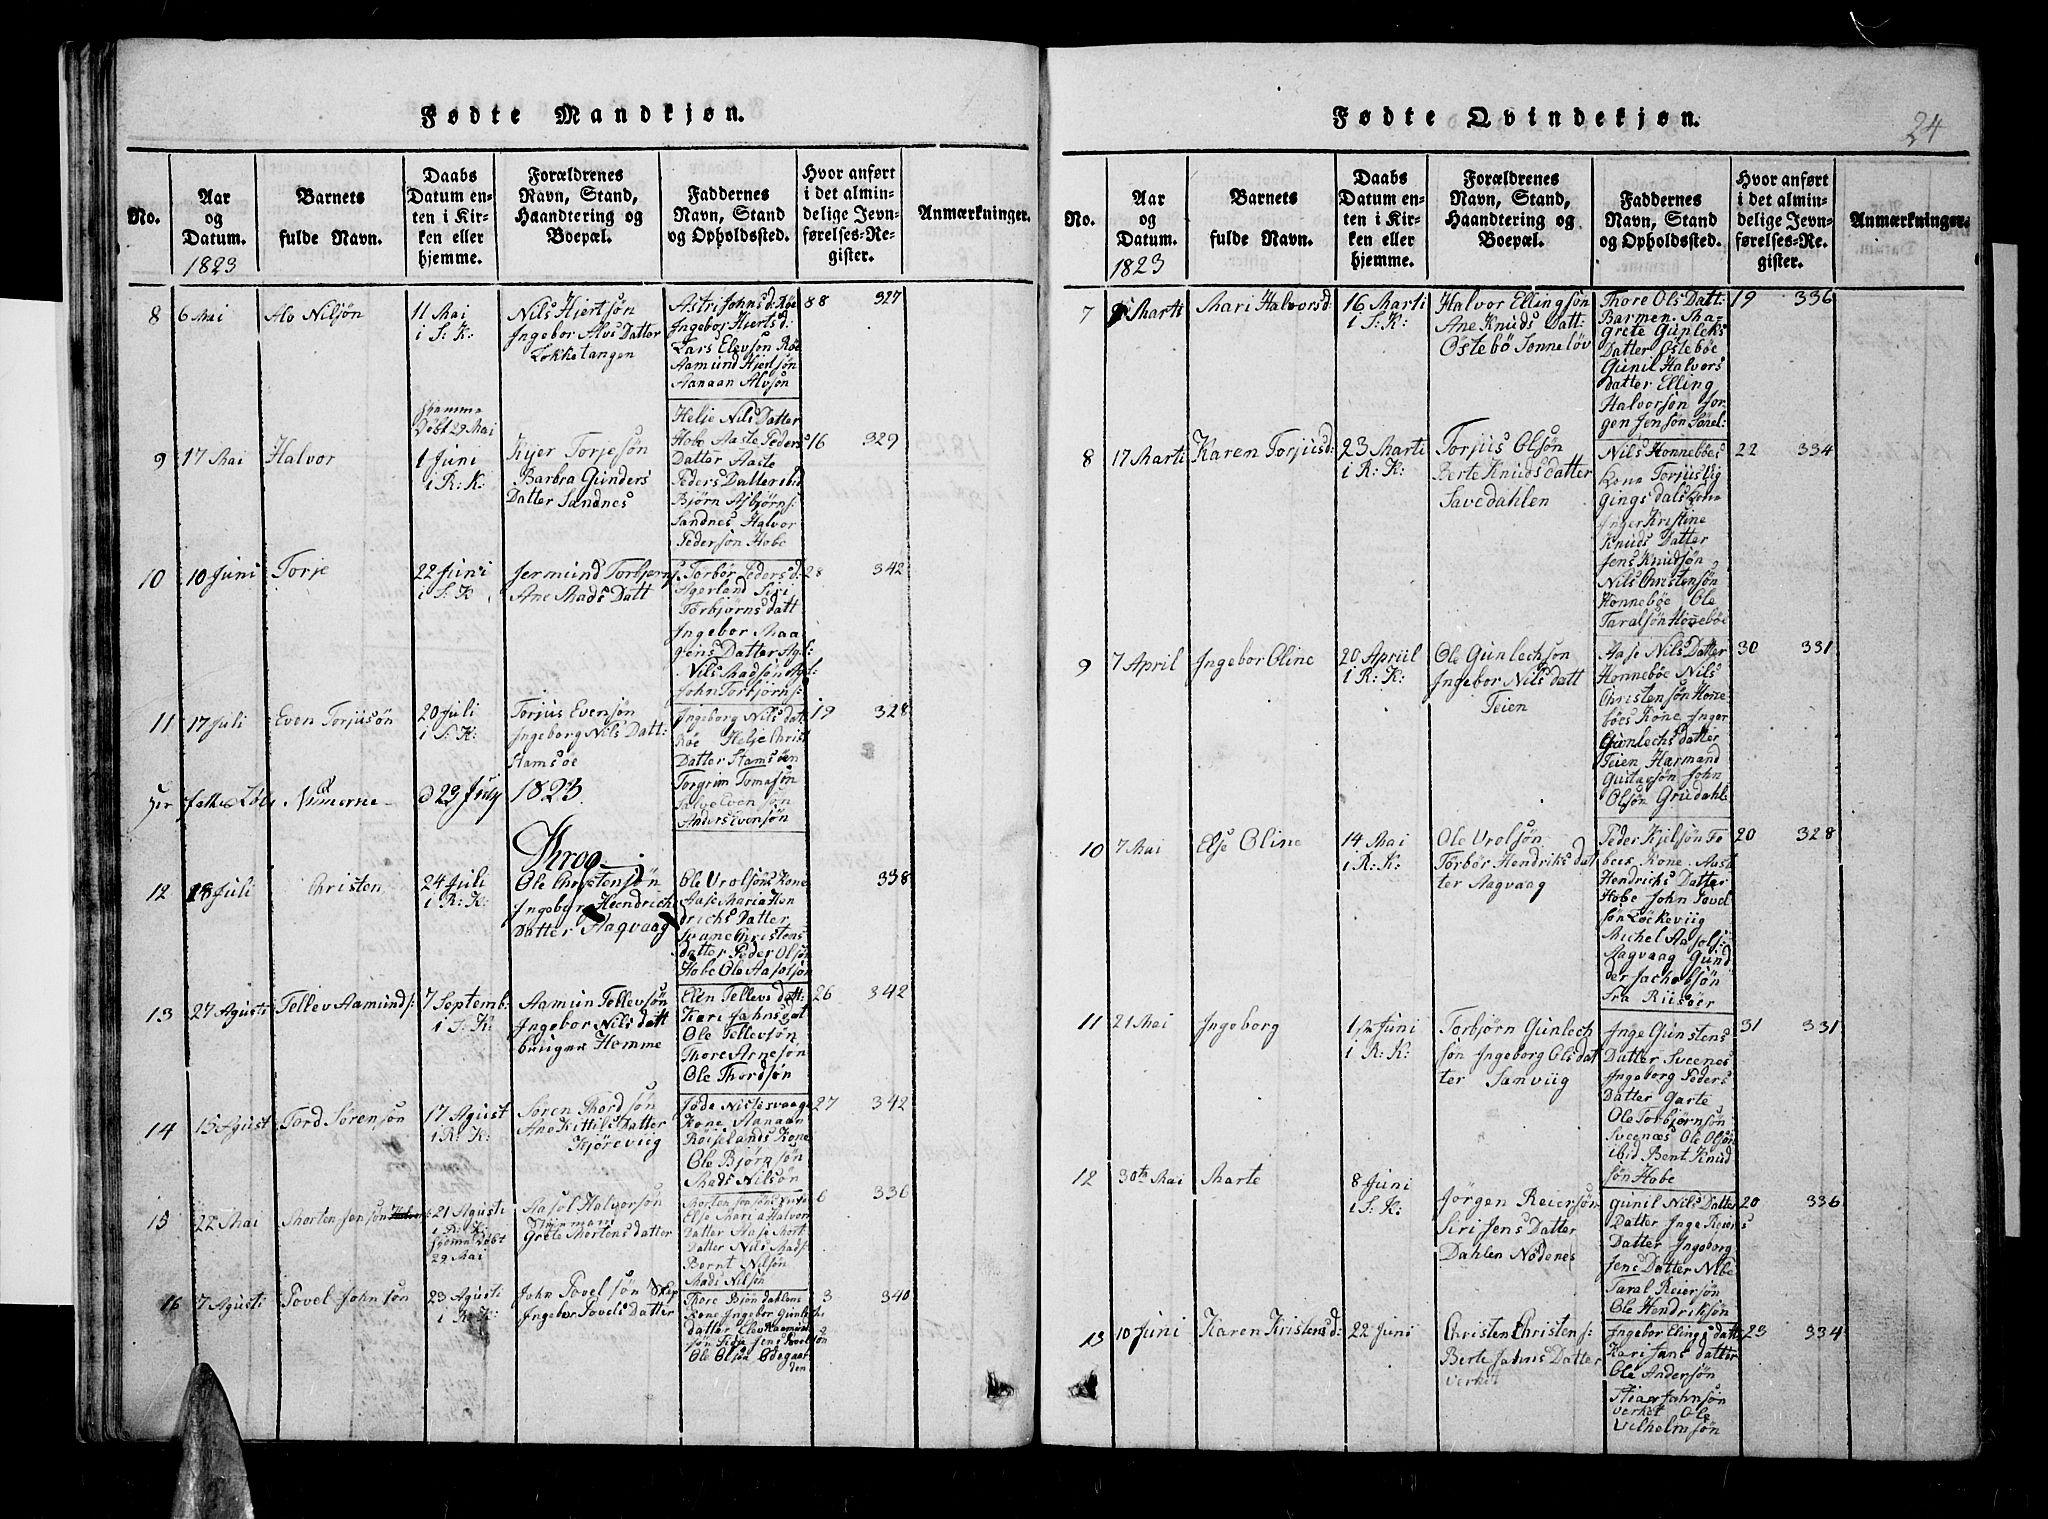 Fødte Mandkjøn.
No.
Aar
og
Datum.
1823
Barnets
fulde Navn.
Daabs
Datum en-
ten i Kir-
ken eller
hjemme.
Forældrenes
Navn, Stand,
Haandtering og
Boepæl.
Faddernes
Navn, Stand
og Opholdssted.
Hvor anført
i det almin-
delige Jevn-
førelses-Re-
gister.
Anmærkninger.
8
6 Mai
Alv Nilsøn
11 Mai
i S: K:
Nils Hjertsøn
Ingebor Alvs Datter
Lokketangen
Astri Johnsd: Røe
Ingebor Hjertsd:
Lars Elevsøn Røe
Aamund Hjertsøn
Aanaan Alvsøn
88 327
9
17 Mai
Halvor
hjemme
Døbt 29 Mai
1 Juni
i R: K:
Kijer Torjesøn
Barbra Gunders
Datter Sandnes
Helje Nils Datter
Hobe Aaste Peders
Datter Aaste
Peders Datter ibid
Bjørn Asbjørns:
Sandnes Halvor
Pedersøn Hobe
16 329
10
10 Juni
Torje
22 Juni
i S: K
Jermund Torbjørns:
Ane Mads Datt
Torbør Pedersd:
Agerland Siri
Torbjørns datt
Ingebor Maa
gens Datter Agl:
Nils Madsøn Agl:
John Torbjørns:
28 342
11
17 Juli
Even Torjusøn
20 Juli
i S: K:
Torjus Evensøn
Ingeborg Nils Datt:
Stamsøe
Ingeborg Nils dat
Røe Helje Christ
Datter Stamsøen
Torgrim Tomasøn
Salve Evensøn
Anders Evensøn
19 328
Numerne
d 23 July 1823.
Krog
12
18 Juli
Christen
24 Juli
i R: K:
Ole Christensøn
Ingebor Hendrich
Datter Aagvaag
Ole Urolsøns Kone
Aase Maria Hen
drichs Datter
Christens
datter Peder Olsøn
Hobe Ole Aasolsøn
338
13
27 Agusti
Tellev Aamunds:
7 Septemb:
i S: K:
Aamun Tellevsøn
Ingebor Nils datt
Hemme
Elen Tellevs datt:
Kari Jahns dat
Ole Tellevsøn
Thore Arnesøn
Ole Thordsøn
26 342
14
15 Agust
Tord Sørensøn
17 Agust
i R: K:
Søren Thordsøn
Ane Kittils Datter
Kjøreviig
Kone Aanaan
Røiselands Kone
Ole Bjørnsøn
Mads Nilsøn
27 342
15
22 Mai
Morten Jensøn
21 Agusti
i R: K:
hjemme Døbt
29 Mai
Aasol Halvorsøn
Stürmann
Grete Mortens datter
Else Maria Halvors
Datter Aase Mort
Datter Nils Mads
Bernt Nilsøn
Mads Nilsøn
6 336
16
7 Agusti
Povel Johnsøn
23 Agusti
i R: K:
John Povelsøn
Ingebor Povels Datter
Thore Bjøndahlens
Kone Ingebor Gunlechs
datter Elev Raamünd
søn Jens Povelsøn
Ole Olsøn Ødegaar
den
3 340
Fødte Qvindekjøn.
24
No.
Aar
og
Datum.
1823
Barnets
fulde Navn.
Daabs
Datum en-
ten i Kir-
ken eller
hjemme.
Forældrenes
Navn, Stand,
Haandtering og
Boepæl.
Faddernes
Navn, Stand
og Opholdssted.
Hvor anført
i det almin-
delige Jevn-
førelses-Re-
gister.
Anmærkninger.
7
Marti
Mari Halvorsd:
16 Marti
i S: K:
Halvor Ellingsøn
Ane Knuds Datt:
Østebø Sønneløv
Thore Ols Datt:
Barmen. Ma-
grete Gunleks
Datter Østebøe
Gunil Halvors
datter Elling
Halvorsøn Jør
gen Jensøn
19 336
8
17 Marti
Karen Torjusd:
23 Marti
i R: K:
Torjus Olsøn
Berte Knuds datter
Savedahlen
Nils Honnebøes
Kone Torjus Vig
gings dals Kone
Inger Kristine
Knuds Datter
Jens Knudsøn
Nils Christensøn
Honnebøe Ole
Taralsøn Honebøe
22 334
9
7 April
Ingebor Oline
20 Apriil
i R: K:
Ole Gunlechsøn
Ingebor Nils datt
Teien
Aase Nils Datter
Honnebøe Nils
Christensøn Hone
bøes Kone Inger
Gunlechs datter
Teien Harmand
Gustavsøn John
Olsøn Grudahl
30 331
10
7 Mai
Else Oline
14 Mai
i R: K:
Ole Urolsøn
Torbør Hendriks dat
ter Aagvaag
Peder Kjelsøn Fe
bees Kone. Aase
Hendricks Datter
Hobe John Povel
søn Løckeviig
Michel Aasols:
Aagvaag Gund
der Jachobsøn
Fra Riisøer
20 328
11
21 Mai
Ingeborg
1ste Juni
i R: K:
Torbjørn Gunlech
søn Ingeborg Ols dat
ter Sanviig
Inge Gunstens
Datter Sveenes
Ingeborg Peders
Datter Garte
Ole Torbjørnsøn
Sveenæs Ole Olsøn
ibid Bent Knud
søn Hobe
31 331
12
30te Mai
Marte
8 Juni
i S: K:
Jørgen Reiersøn
Siri Jens Datter
Dahlen Nødenes
Gunil Nils Datter
Datter Inge Reiers
Datter Ingeborg
Jens Datter Nibe
Taral Reiersøn
Ole Hendriksøn
20 336
13
10 Juni
Karen Kristensd:
22 Juni
Christen Christens:
Berte Jahns Datter
Verket
Ingebor Elings datt
Kari Jans datter
Ole Andersøn
Jahnsøn
verket Ole
Vilhelmsøn
23 334